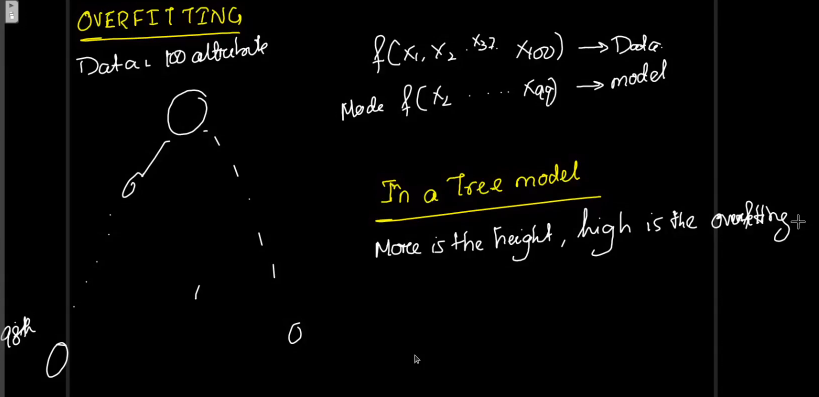 OVERFITTING
Data: 100 attribute
f(x1, x2 .x37. x100) → Data.
Mode f(x2 ..... x99) → model
In a Tree model
More is the height, high is the overfitting
98th